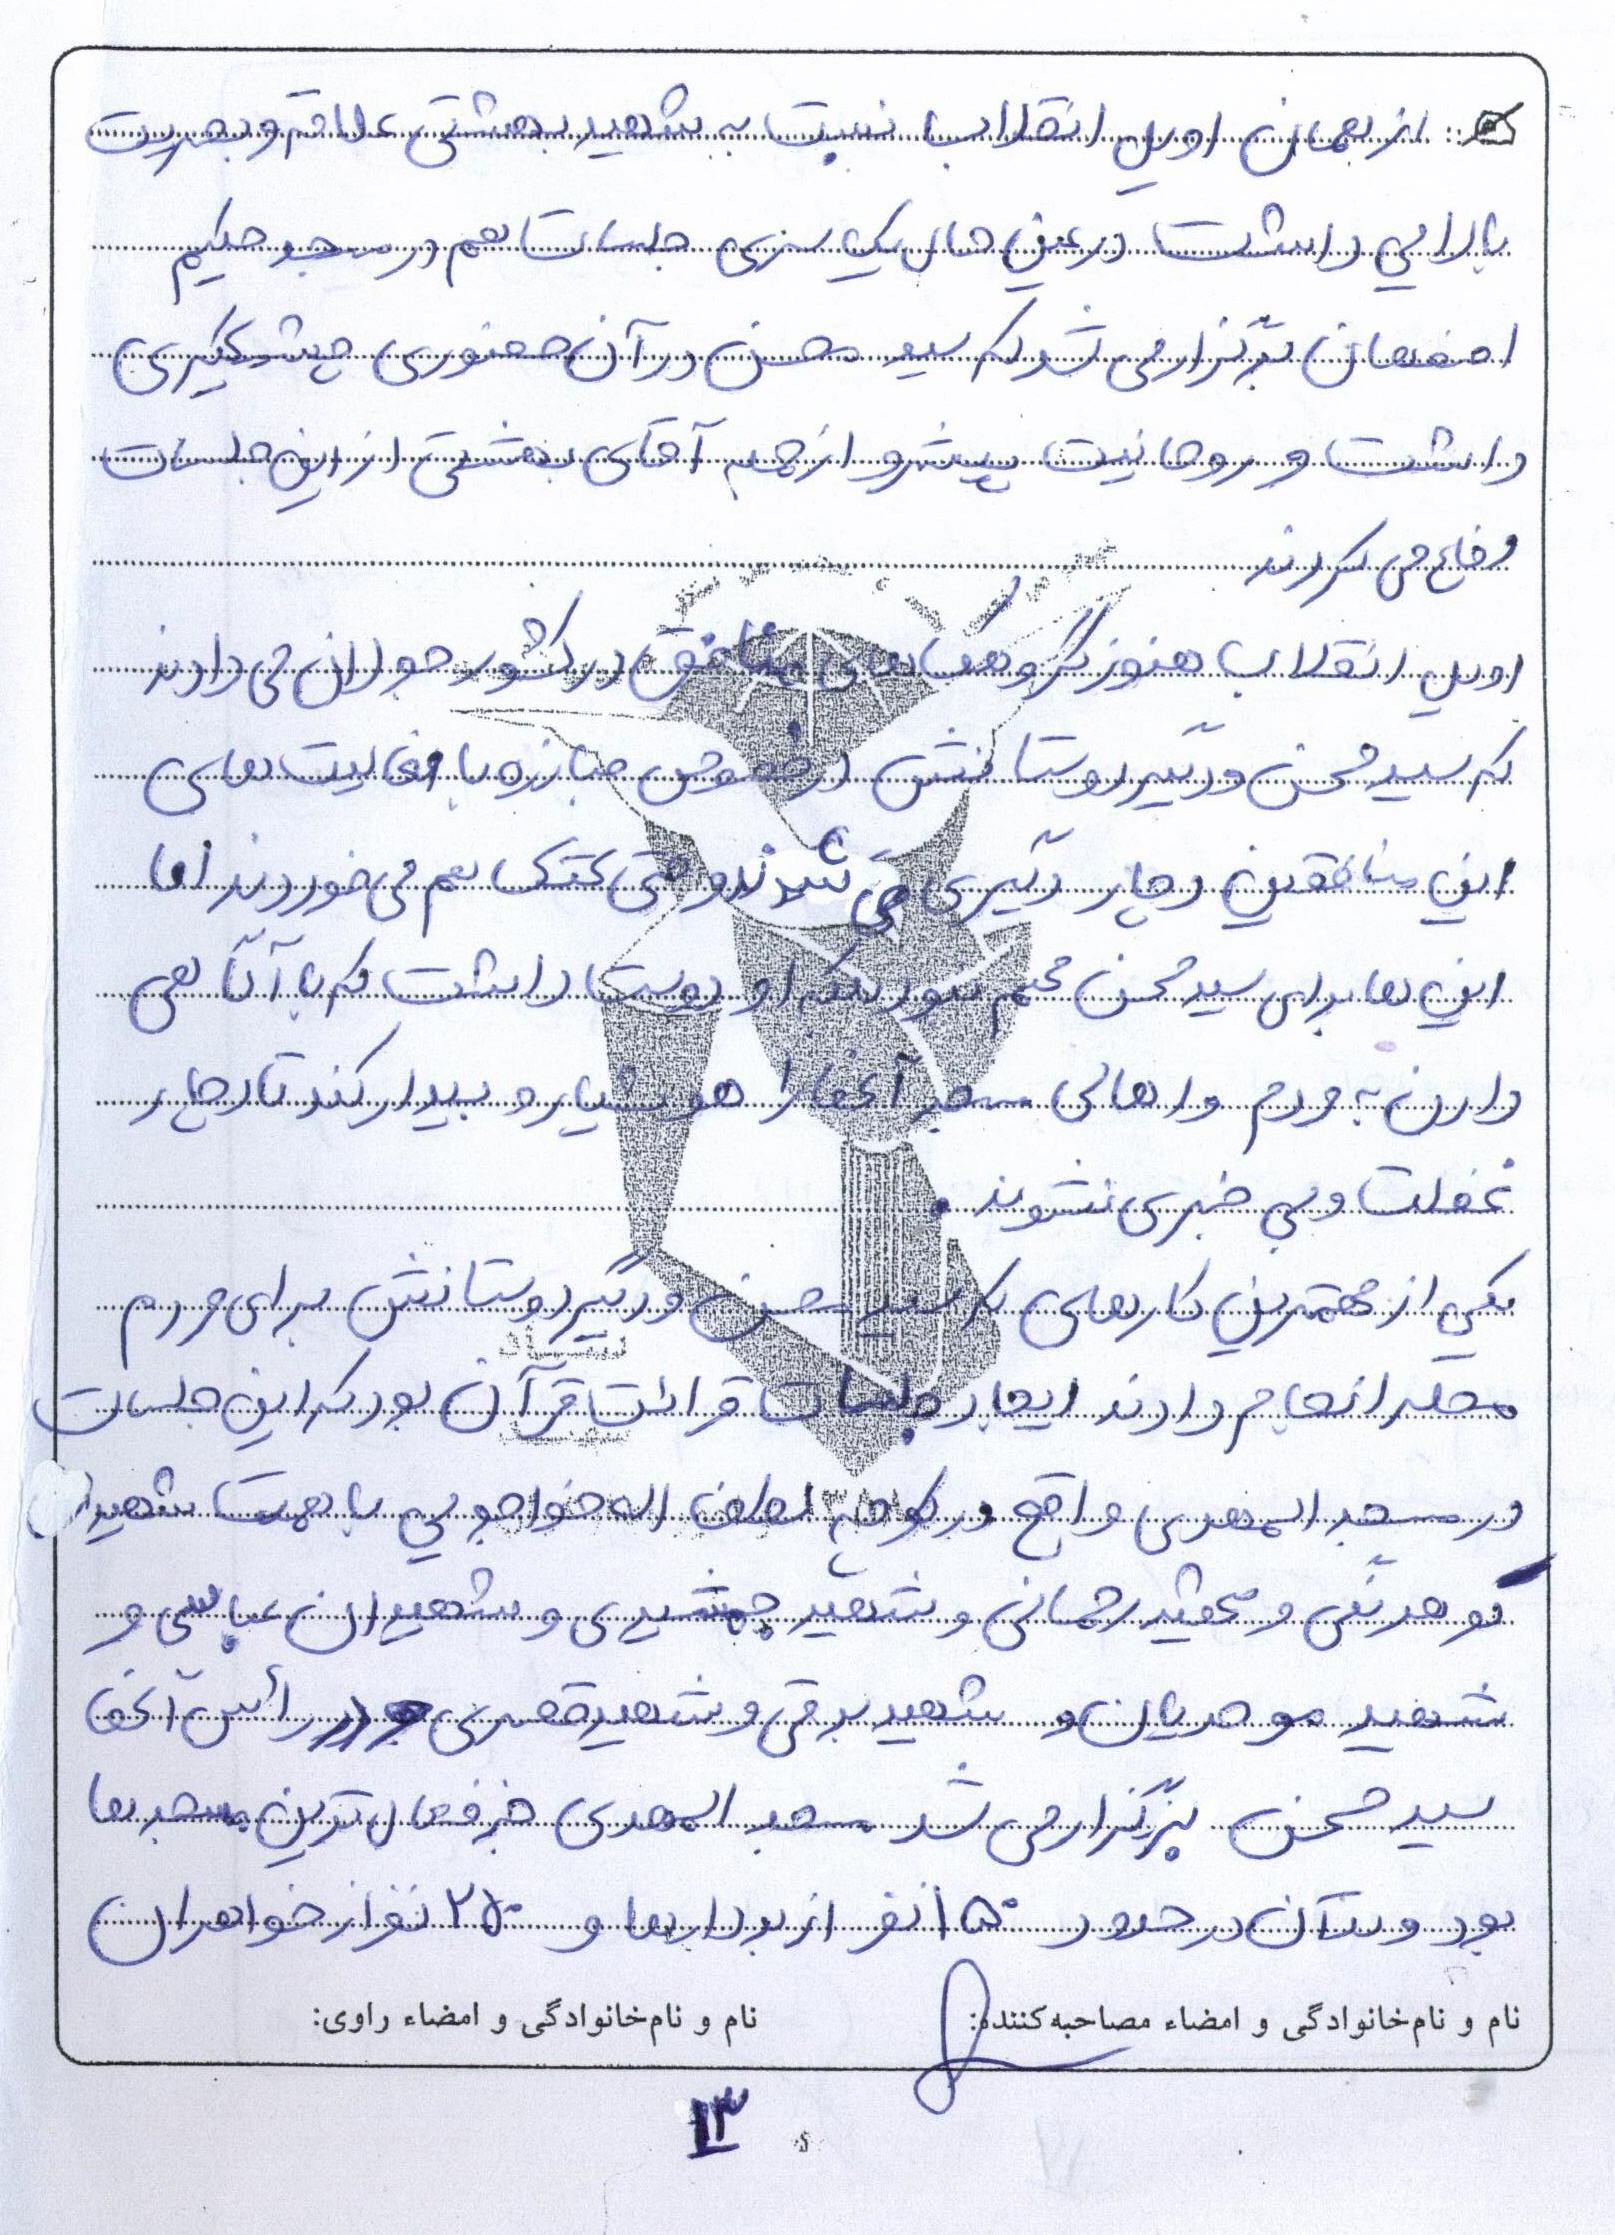 از همان اوایل انقلاب نسبت به شهید بهشتی علاقه و بصیرت
بالایی داشت در عین حال یک سری جلسات هم در مسجد حکیم
اصفهان برگزار می شد که سید محسن در آن حضوری چشمگیری
داشت و روحانیت پیشرو از جمله آقای بهشتی از این جلسات
دفاع می کردند
اوایل انقلاب هنوز گروهک های منافق در کشور جولان می دادند
که سید محسن و دیگر دوستانش در خصوص مبازه با فعالیت های
این منافقین دچار درگیری می شدند و حتی کتک هم می خوردند اما
این ها برای سید محسن مهم نبود بلکه او دوست داشت که با آگاهی
دادن به مردم و اهالی مسجد آنها را هوشیار و بیدار کند تا دچار
غفلت و بی خبری نشوند .
یکی از مهمترین کارهای که سید محسن و دیگر دوستانش برای مردم
محله انجام دادند ایجاد جلسات قرائت قرآن بود که این جلسات
در مسجد المهدی واقع در کوچه لطف اله خواجویی با همت شهید
و شهید رحمانی و شهید جمشیدی و شهیدان عباسی و
شهید موحدیان و شهید برقی و شهید قصری در رأس آنها
سید محسن برگزار می شد مسجد المهدی جزء فعال ترین مسجد ها
بود و در آن در حدود ۱۵۰ نفر از برادرها و ۲۵۰ نفر از خواهران
نام و نام‌خانوادگی و امضاء مصاحبه‌کننده:
نام و نام‌خانوادگی و امضاء راوی:
۱۳